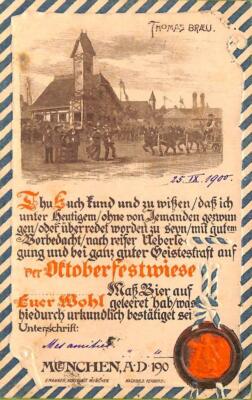 THOMAS BRÆU.
25. IX. 1900.
Thu Euch kund und zu wißen/daß ich
unter Heutigem/ohne von Jemanden gezwun
gen/oder überredet worden zu seyn/mit gutem
Vorbedacht/nach reifer Ueberle,
gung und bei ganz guter Geisteskraft auf
der Oktoberfestwiese
Maß Bier auf
Euer Wohl geleeret hab/was
hiedurch urkundlich bestätiget sei
Unterschrift:
MÜNCHEN, A·D·190